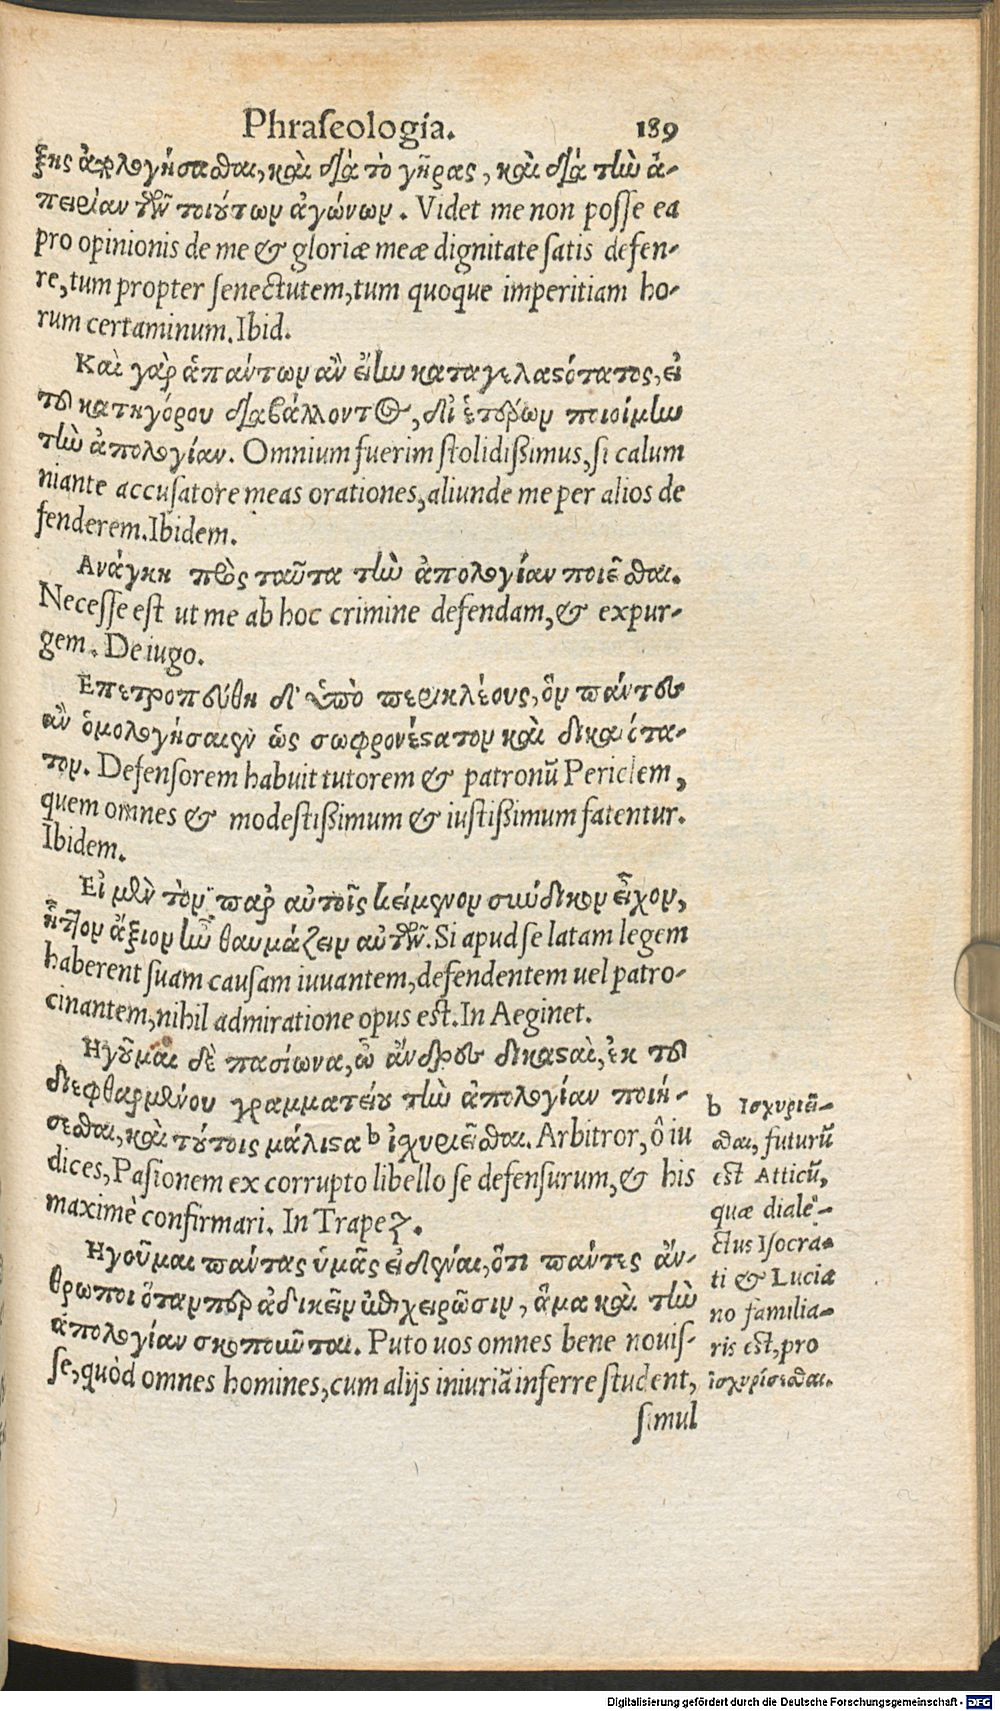 Phraſeologia. 189
ξης ἀπολογήσασθαι, καὶ διὰ τὸ γῆρας, καὶ διὰ τὴν ἀ-
πειρίαν τῶν τοιούτων ἀγώνων. Videt me non poſſe ea
pro opinionis de me & gloriæ meæ dignitate ſatis defen-
re, tum propter ſenectutem, tum quoque imperitiam ho-
rum certaminum. Ibid.
Καὶ γὰρ ἁπάντων ἂν εἴην καταγελαστότατος, εἰ
τοῦ κατηγόρου διαβάλλοντος, δι' ἑτέρων ποιοίμην
τὴν ἀπολογίαν. Omnium fuerim ſtolidiſsimus, ſi calum
niante accuſatore meas orationes, aliunde me per alios de
fenderem. Ibidem.
Ανάγκη πρὸς ταῦτα τὴν ἀπολογίαν ποιεῖσθαι.
Neceſſe eſt ut me ab hoc crimine defendam, & expur-
gem. De iugo.
Επετροπεύθη δ' ὑπὸ περικλέους, ὃν πάντες
ἂν ὁμολογήσαιεν ὡς σωφρονέστατον καὶ δικαιότα-
τον. Defenſorem habuit tutorem & patronũ Periclem,
quem omnes & modeſtiſsimum & iuſtiſsimum fatentur.
Ibidem.
Εἰ μὲν τὸν παρ αὐτοῖς κείμενον σύνδικον εἶχον,
ἧττον ἄξιον ἦν θαυμάζειν αὐτῶν. Si apud ſe latam legem
haberent ſuam cauſam iuuantem, defendentem uel patro-
cinantem, nihil admiratione opus eſt. In Aeginet.
Ηγοῦμαι δὲ πασίωνα, ὦ ἄνδρες δικασταὶ, ἐκ τοῦ
διεφθαρμένου γραμματείου τὴν ἀπολογίαν ποιή-
σεσθαι, καὶ τούτοις μάλιστα b ἰχυριεῖσθαι. Arbitror, ô iu
dices, Paſionem ex corrupto libello ſe defenſurum, & his
maximè confirmari. In Trapez.
Ηγοῦμαι πάντας ὑμᾶς εἰδέναι, ὅτι πάντες ἄν-
θρωποι ὅταν περ ἀδικεῖν ἐπιχειρῶσιν, ἅμα καὶ τὴν
ἀπολογίαν σκοποῦνται. Puto uos omnes bene nouiſ-
ſe, quòd omnes homines, cum alijs iniuriã inferre ſtudent,
ſimul
b Ισχυριεῖ-
σθαι, futurũ
eſt Atticũ,
quæ diale-
ctus Iſocra-
ti & Lucia
no familia-
ris eſt, pro
ἰσχυρίσεσθαι.
Digitalisierung gefördert durch die Deutsche Forschungsgemeinschaft - DFG